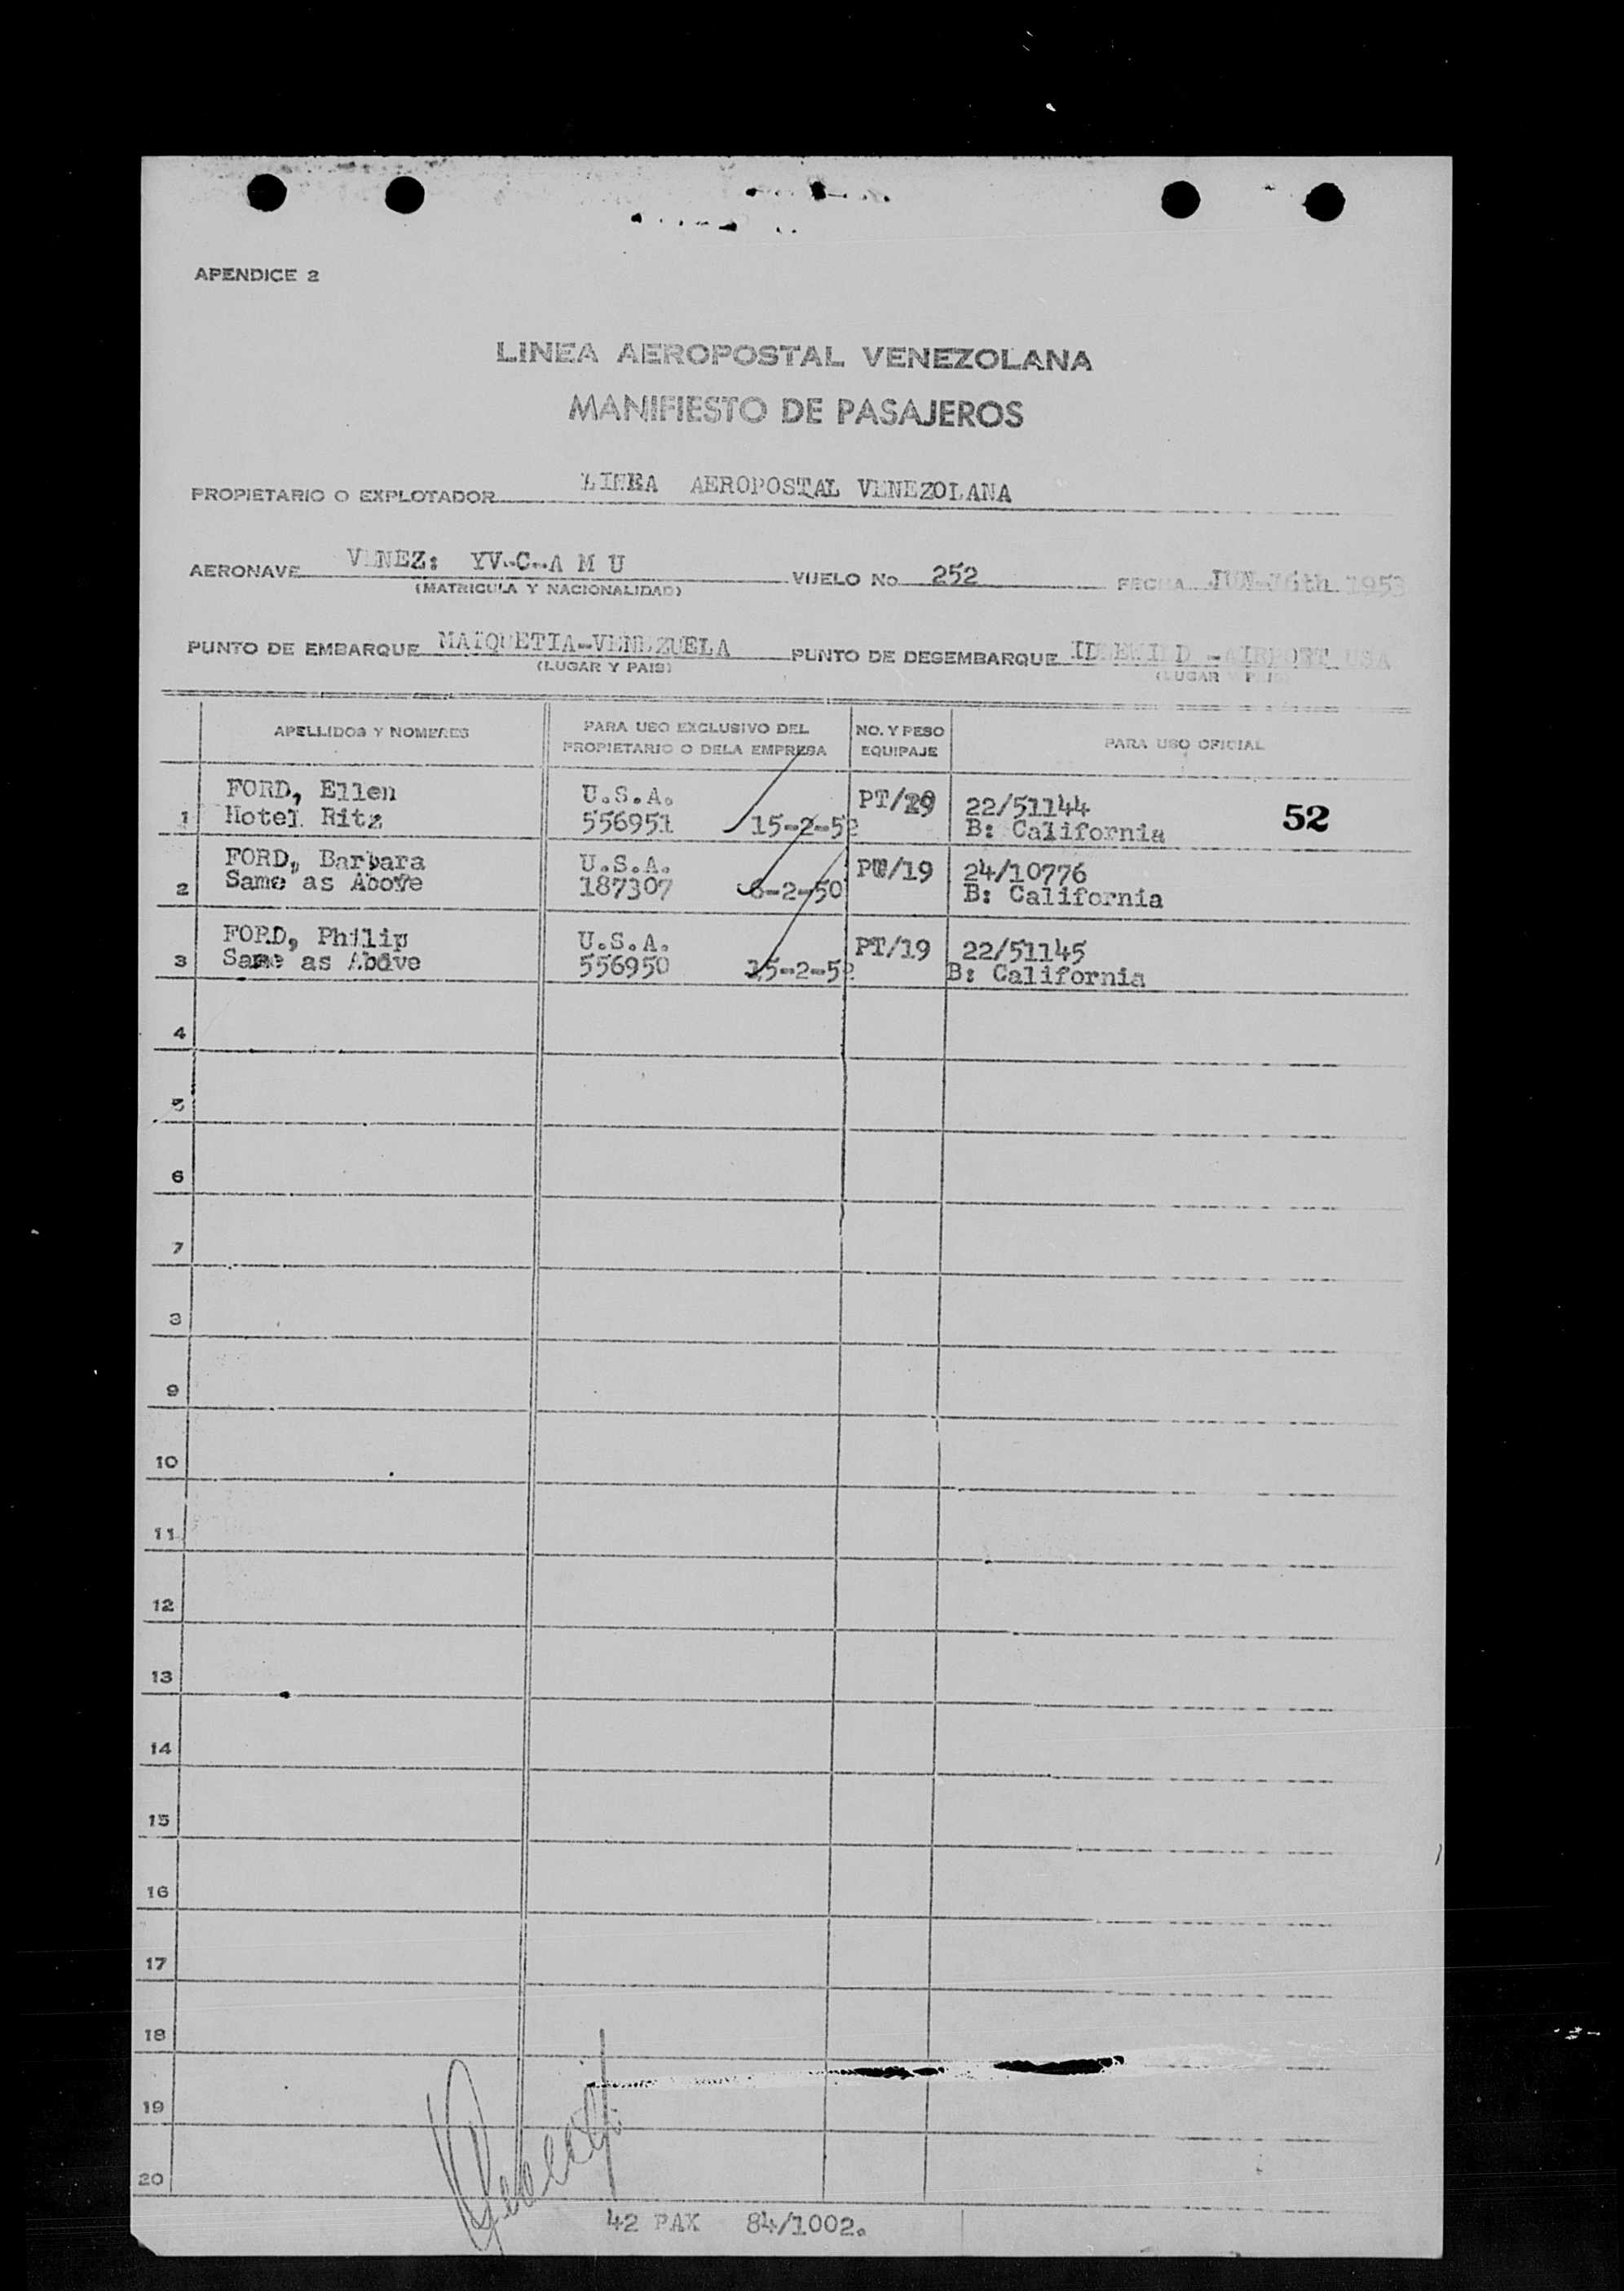 APENDICE 2
LINEA AEROPOSTAL VENEZOLANA
MANIFIESTO DE PASAJEROS
PROPIETARIO O EXPLOTADOR LINEA AEROPOSTAL VENEZOLANA
AERONAVE VENEZ: YV-C-A M U VUELO No 252 FECHA JUN-16th 1953
(MATRICULA Y NACIONALIDAD)
PUNTO DE EMBARQUE MAIQUETIA-VENEZUELA PUNTO DE DESEMBARQUE IDLEWILD -AIRPORT USA
(LUGAR Y PAIS) (LUGAR Y PAIS)
APELLIDOS Y NOMBRES PARA USO EXCLUSIVO DEL PROPIETARIO O DE LA EMPRESA NO. Y PESO EQUIPAJE PARA USO OFICIAL
FORD, Ellen U.S.A. PT/19 22/51144 52
1 Hotel Ritz 556951 15-2-52 B: California
FORD, Barbara U.S.A. PT/19 24/10776
2 Same as Above 187307 6-2-50 B: California
FORD, Philip U.S.A. PT/19 22/51145
3 Same as Above 556950 15-2-52 B: California
4
5
6
7
8
9
10
11
12
13
14
15
16
17
18
19
20
42 PAX 84/1002.